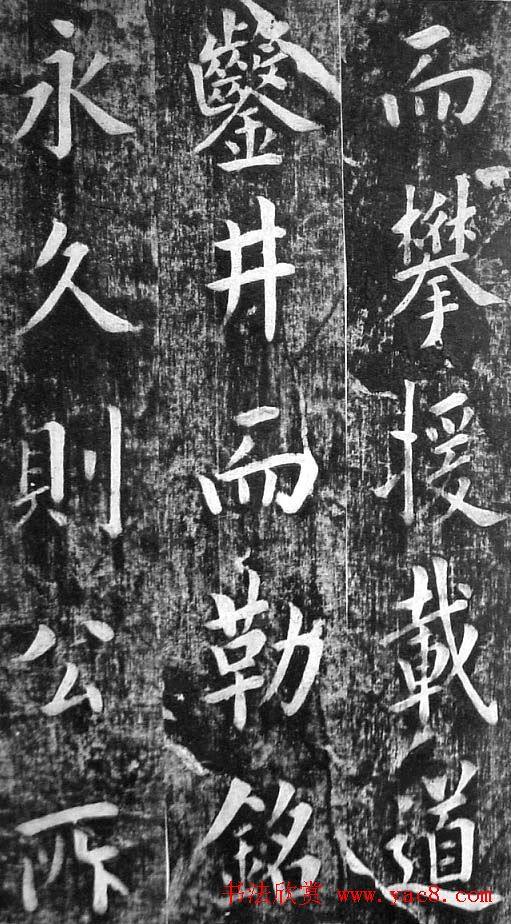 而攀援載道
鑿井而勒銘
永久則公所
书法欣赏 www.yac8.com